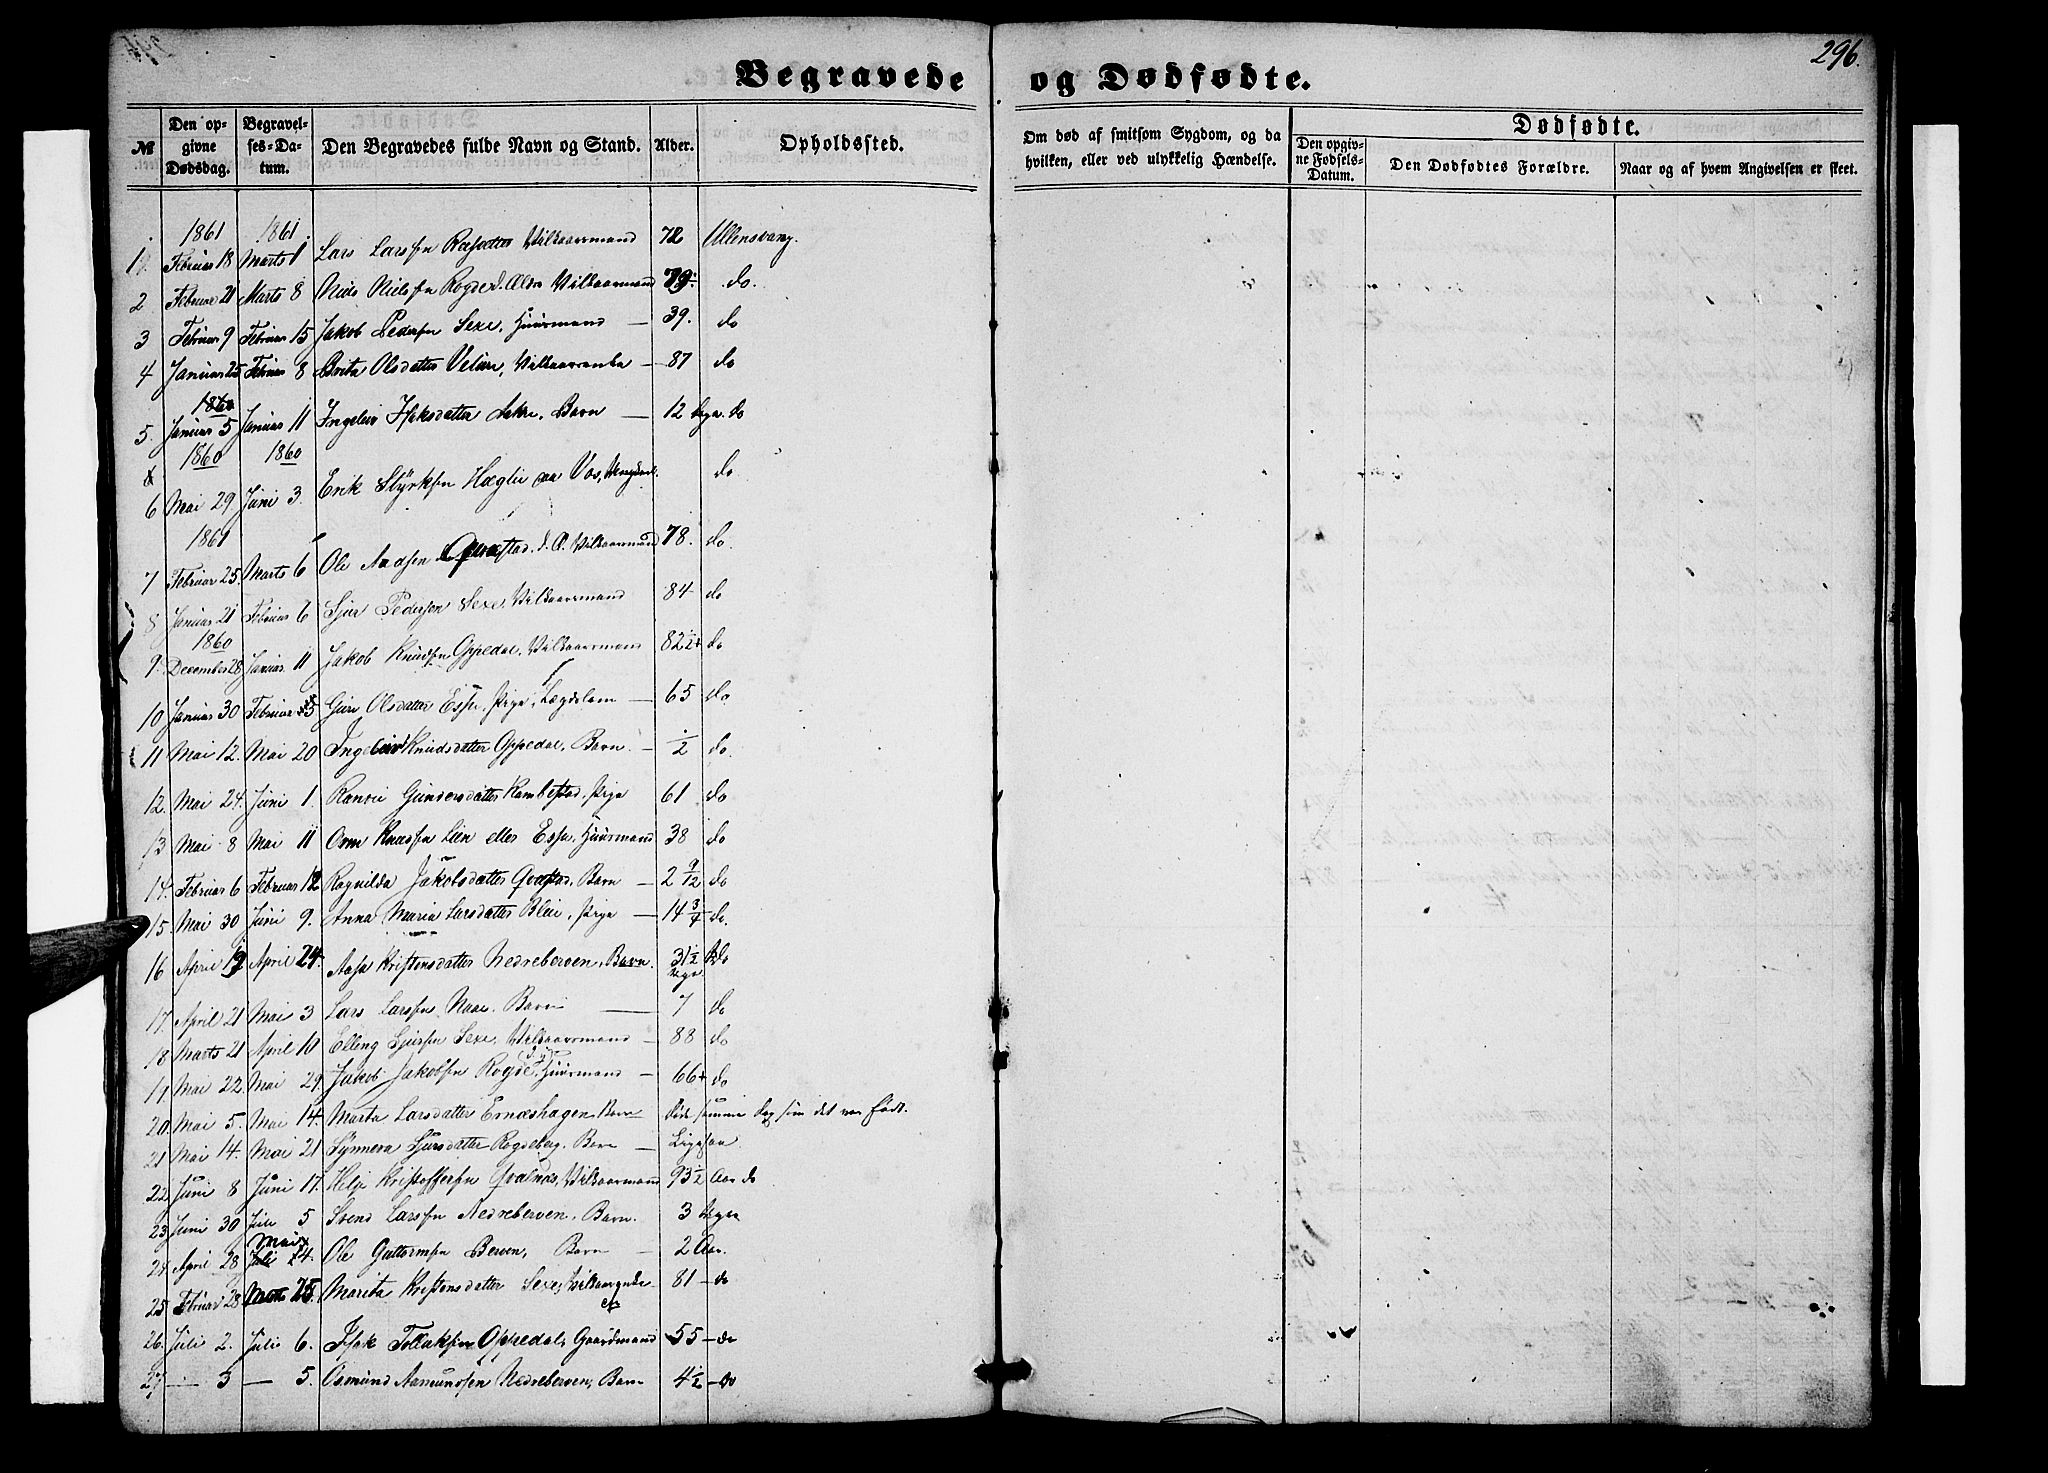 296.
Begravede og Dødfødte.
№ Den opgivne Dødsdag. Begravelses-Datum. Den Begravedes fulde Navn og Stand. Alder. Opholdssted. Om død af smitsom Sygdom, og da hvilken, eller ved ulykkelig Hændelse. Dødfødte.
Den opgivne Fødsels-Datum. Den Dødfødtes Forældre. Naar og af hvem Angivelsen er skeet.
1861 1861.
1. Februar 18 Marts 1 Lars Larssen Vilkaarsmand 72 Ullensvang.
2 Februar 21 Marts 8 Niels Nielssen Rogde d. Ældre Vilkaarsmand 79 do.
3 Februar 9 Februar 15 Jakob Pedersen Sexe, Huusmand — 39. do
4 Januar 25 Februar 8 Brita Olsdatter Velure, Vilkaarsenke — 87 do
5. Januar 5 Januar 11 Ingeleiv Isaksdatter Børn — 12 Dage do
1860 1860
6 Mai 29 Juni 3. Erik Styrksen Hæglie paa Vos, do
1861
7 Februar 25. Marts 6 Ole Aadsen Qvæstad. d. Æ. Vilkaarsmand 78. do.
8 Januar 21 Februar 6 Sjur Pedersen Sexe, Vilkaarsmand 84 do
1860
9. December 28 Januar 11 Jakob Knudsen Oppedal, Vilkaarsmand 82 1/2 do
10 Januar 30 Februar 5 Guri Olsdatter Espe, Pige, Lægdslem — 65 do
11 Mai 12. Mai 20 Ingeleiv Knudsdatter Oppedal, Barn. — 1/2 do.
12. Mai 24. Juni 1. Ranvei Gundersdatter Kambestad, Pige 61 do
13 Mai 8 Mai 11 Orm Knudsen Lien eller Espe, Huusmand 38 do
14. Februar 6 Februar 12 Ragnilda Jakobsdatter Qvæstad, Barn — 2 9/12 do
15. Mai 30 Juni 9. Anna Maria Larsdatter Bleie, Pige — 14 3/4 do.
16 April 19 April 24. Aasa Kristensdatter Nedreberven, Barn. 3 1/2 Uger do
17. April 21 Mai 3 Lars Larssen Naae. Barn — 7 do
18 Marts 21 April 10 Elling Sjursen Sexe, Vilkaarsmand — 88 do
19. Mai 22. Mai 29. Jakob Jakobsen Rogde, Huusmand — 66 do
20 Mai 5. Mai 14. Marta Larsdatter Ernæshagen, Barn Døde samme Dag som det var født.
21 Mai 14. Mai 21 Synneva Sjursdatter Rogdeberg, Barn — Ligesaa
22 Juni 8 Juni 17. Helje Kristoffersen Qvalnæs, Vilkaarsmand 93 1/2 Aar do
23 Juni 30 Juli 5 Svend Larssen Nedreberven, Barn. 3 Dage
24 April 28 Mai 4. Ole Guttormsen Berven, Barn — 2 Aar.
25 Februar 28 Marts 15. Marita Kristensdatter Sexe, Vilkaarsenke 81 — do
26. Juli 2. Juli 6. Isak Tollaksen Oppedal, Gaardmand 55 — do
27 — 3 — 5. Osmund Aamundsen Nedreberven, Barn 4 1/2 — do